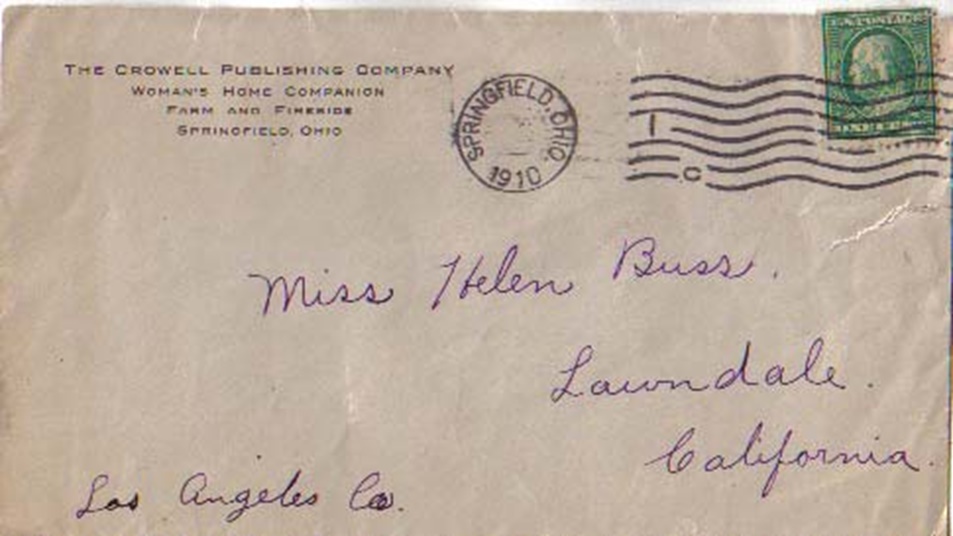 THE CROWELL PUBLISHING COMPANY
WOMAN'S HOME COMPANION
FARM AND FIRESIDE
SPRINGFIELD, OHIO
SPRINGFIELD, OHIO.
1910
C
U.S. POSTAGE
Miss Helen Buss.
Lawndale.
California.
Los Angeles Co.